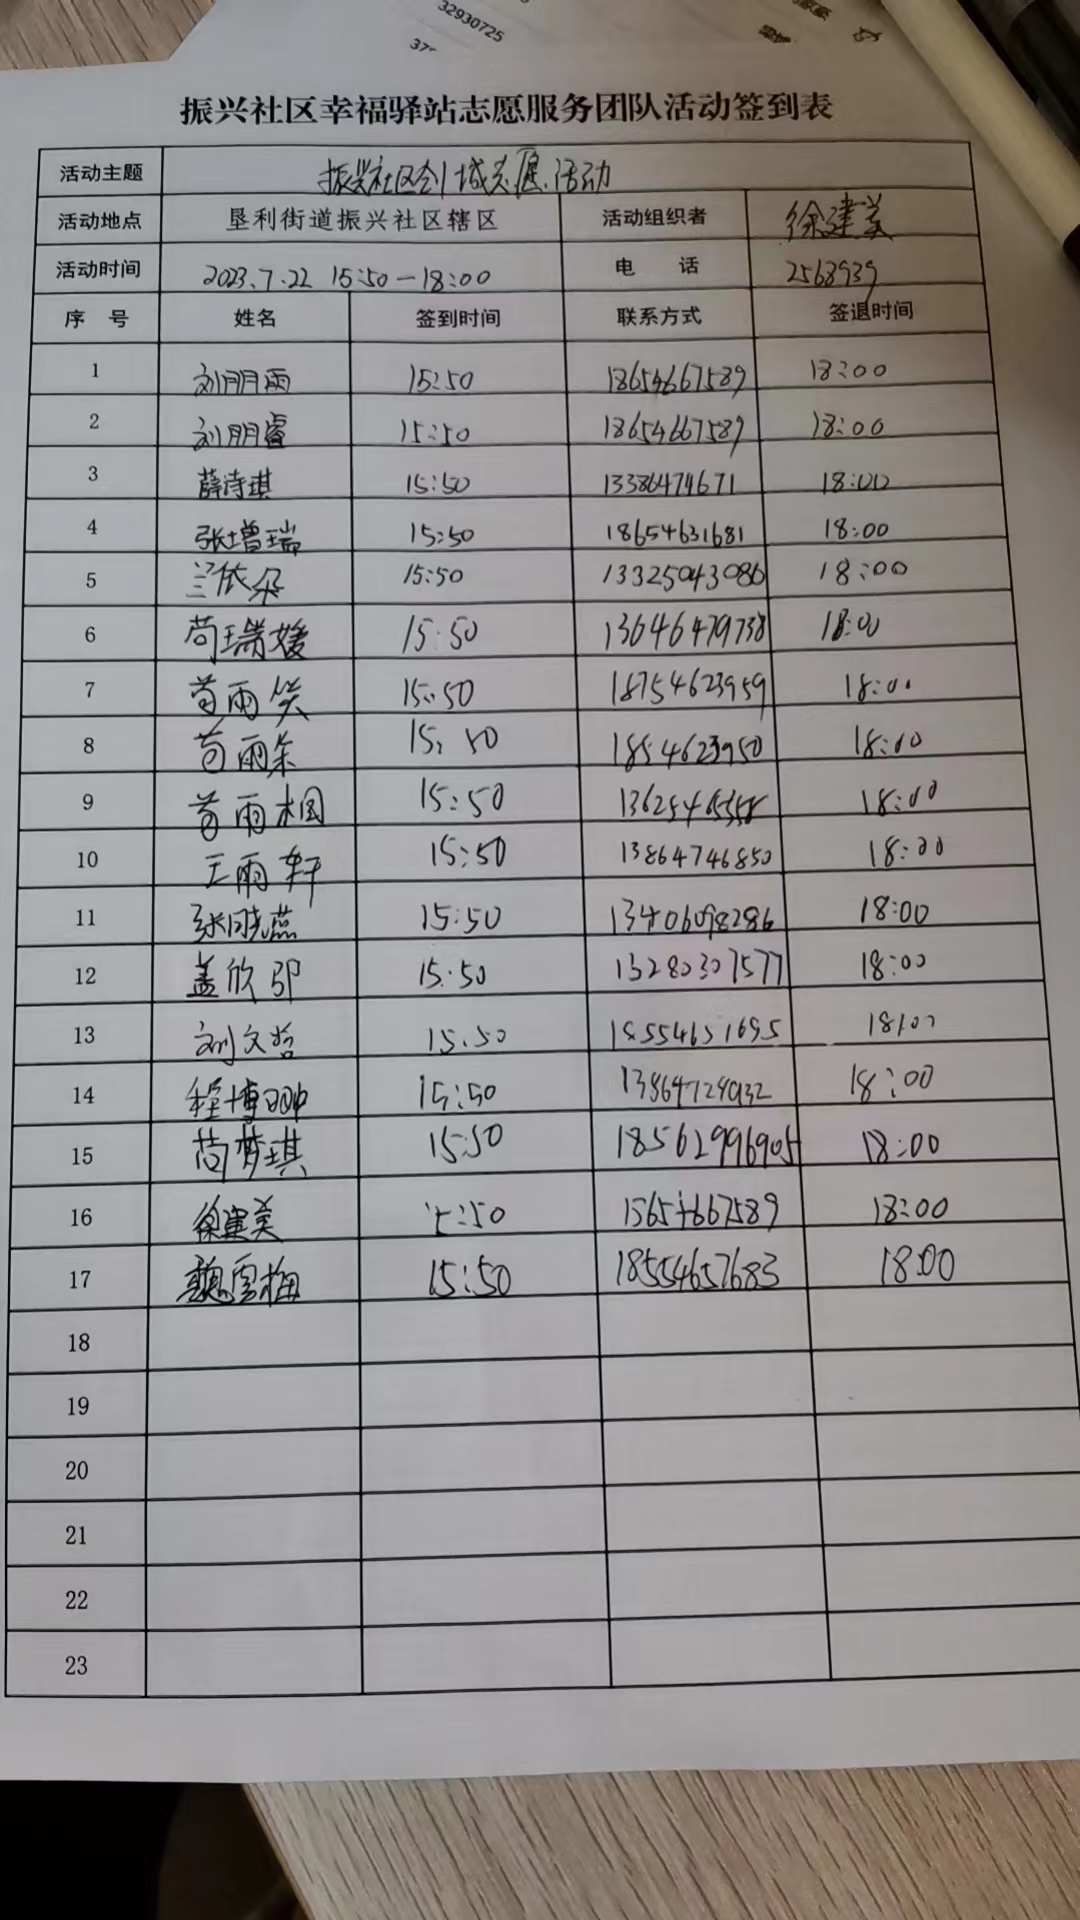 32930725
37
振兴社区幸福驿站志愿服务团队活动签到表
活动主题 振兴社区创城志愿活动
活动地点 垦利街道振兴社区辖区 活动组织者 徐建美
活动时间 2023.7.22 15:50—18:00 电 话 2568939
序 号 姓名 签到时间 联系方式 签退时间
1 刘朋雨 15:50 18654667589 18:00
2 刘朋睿 15:50 18654667589 18:00
3 薛诗琪 15:50 13386474671 18:00
4 张增瑞 15:50 18654631681 18:00
5 兰依朵 15:50 13325043086 18:00
6 苟瑞媛 15:50 13646479738 18:00
7 苟雨笑 15:50 18754623959 18:00
8 苟雨朵 15:50 1854623950 18:00
9 苟雨桐 15:50 18:00
10 王雨轩 15:50 13864746850 18:00
11 张晓燕 15:50 13406098286 18:00
12 盖欣邵 15:50 13280307577 18:00
13 刘文哲 15:50 18554651695 18:00
14 程博翀 15:50 13864724932 18:00
15 苟梦琪 15:50 18562996905 18:00
16 徐建美 15:50 15654667589 18:00
17 魏雪梅 15:50 18554657683 18:00
18
19
20
21
22
23